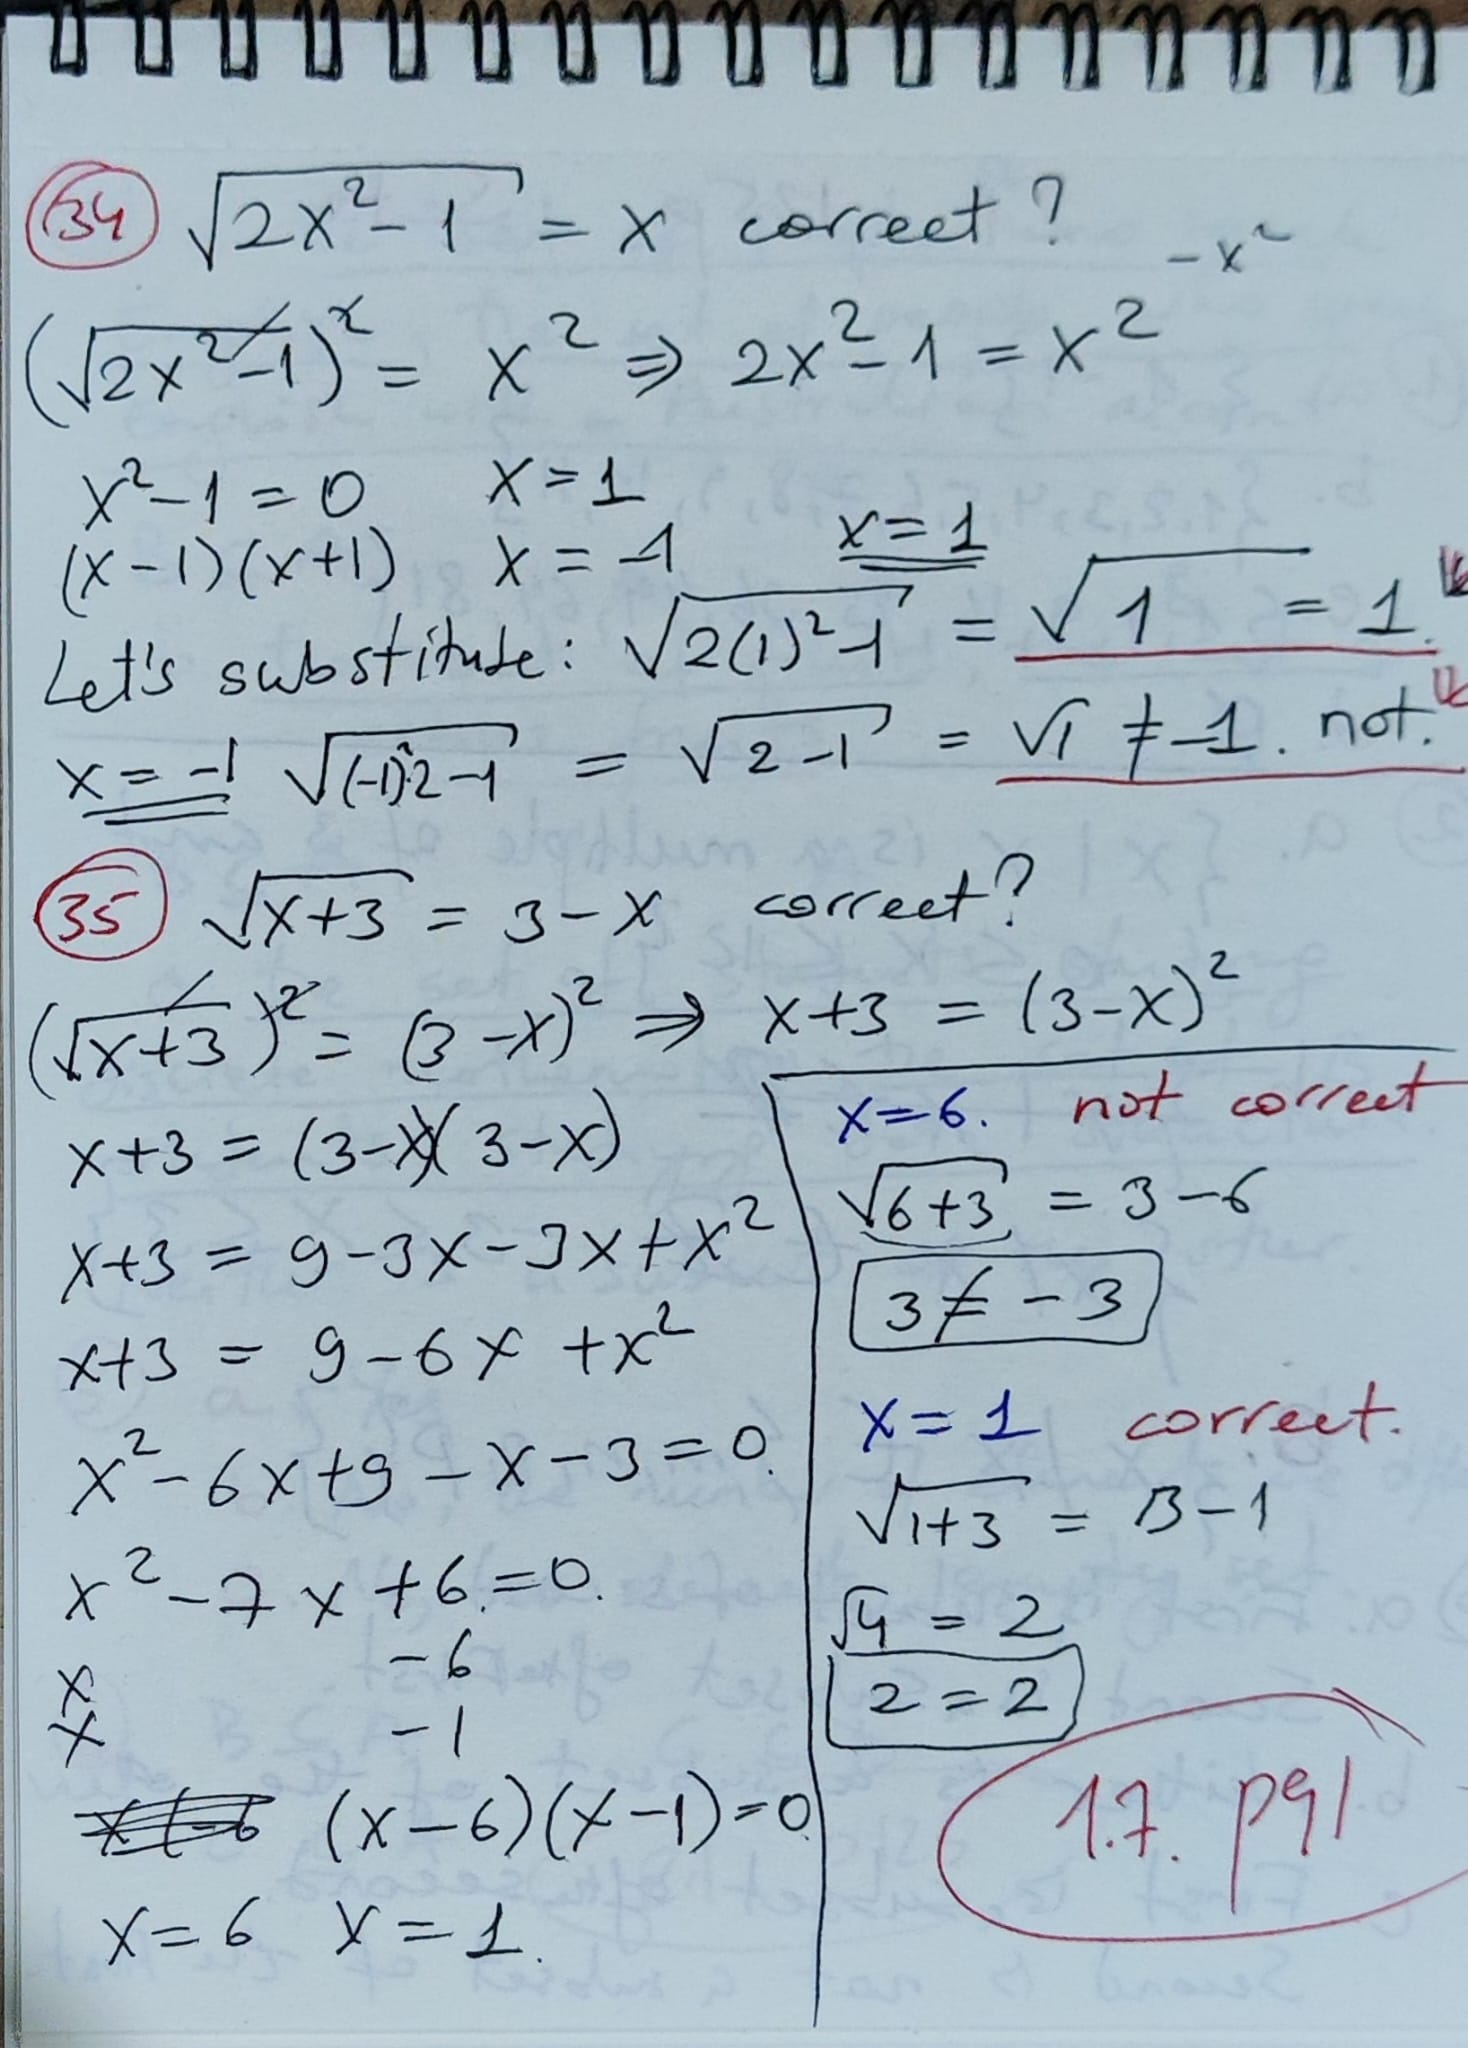 34 √(2x² - 1) = x correct?
- x²
(√(2x² - 1))² = x² ⇒ 2x² - 1 = x²
x² - 1 = 0 x = 1
(x - 1)(x + 1) x = -1 x = 1
Let's substitute: √(2(1)² - 1) = √1 = 1.
x = -1 √((-1)²·2 - 1) = √(2 - 1) = √1 ≠ -1. not.
35 √(x + 3) = 3 - x correct?
(√(x + 3))² = (3 - x)² ⇒ x + 3 = (3 - x)²
x + 3 = (3 - x)(3 - x)
x + 3 = 9 - 3x - 3x + x²
x + 3 = 9 - 6x + x²
x² - 6x + 9 - x - 3 = 0.
x² - 7x + 6 = 0.
x - 6
x - 1
(x - 6)(x - 1) = 0
x = 6 x = 1.
x = 6. not correct
√(6 + 3) = 3 - 6
3 ≠ - 3
x = 1 correct.
√(1 + 3) = 3 - 1
√4 = 2
2 = 2
1.7. p91